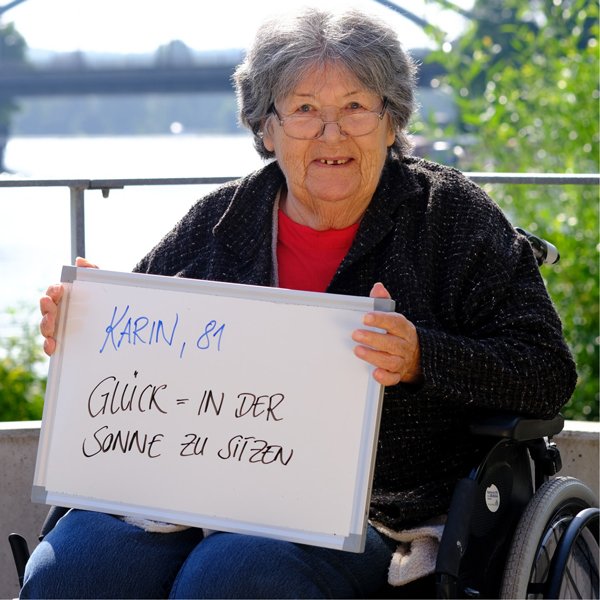 KARIN, 81
GLÜCK = IN DER
SONNE ZU SITZEN